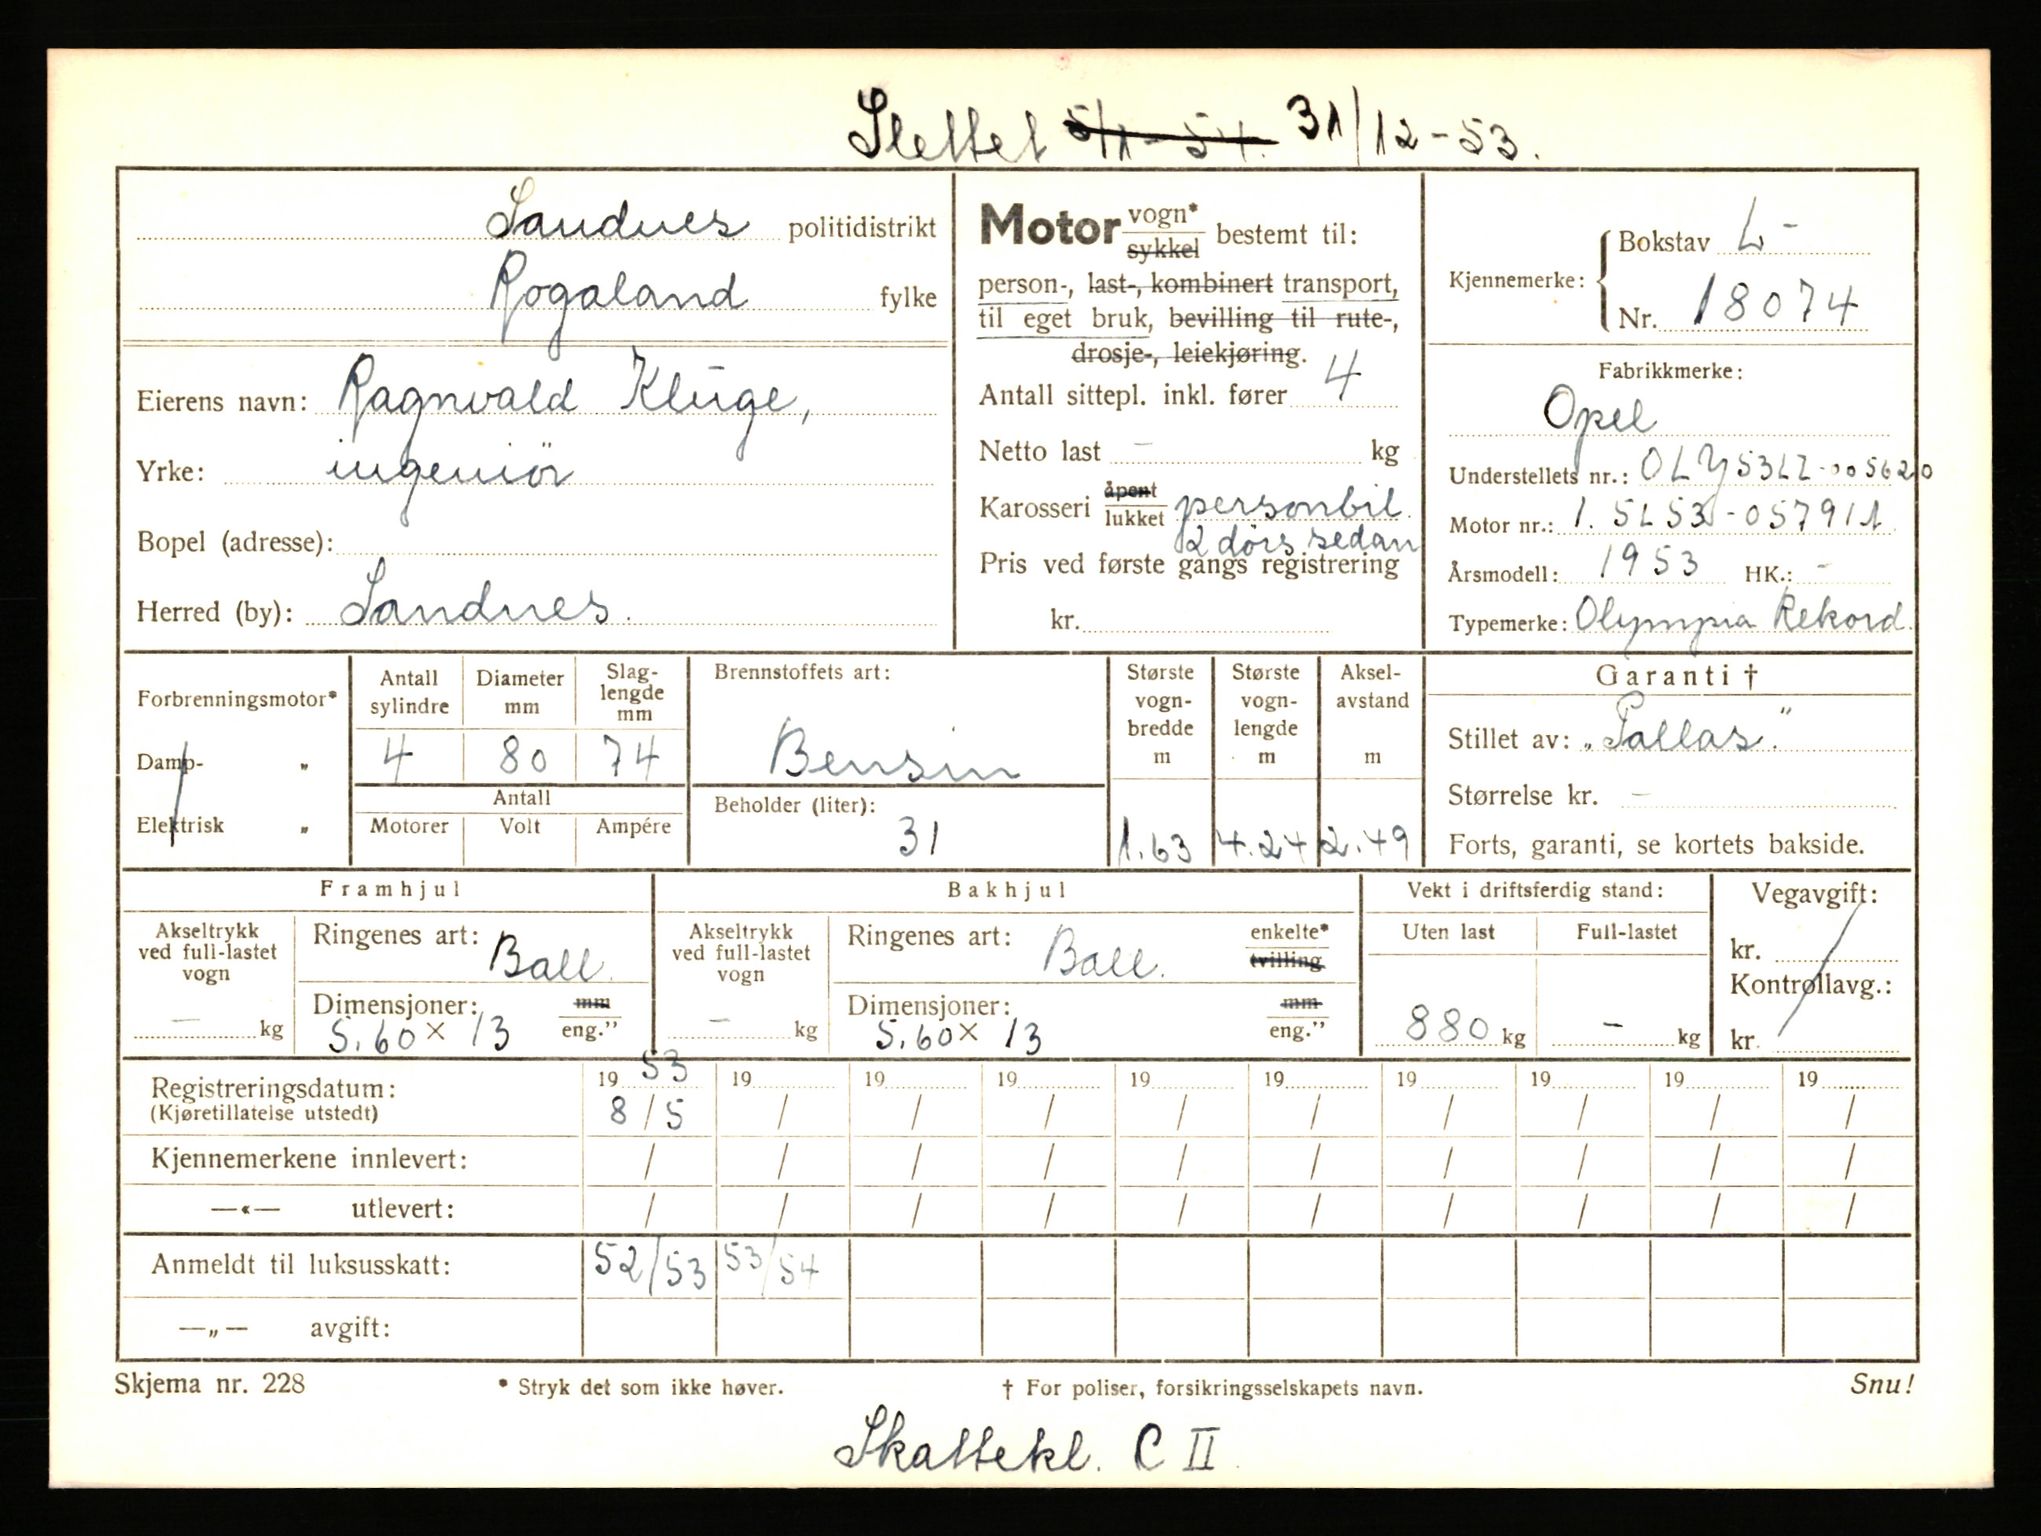 Slettet 5/1-54. 31/12-53.
Sandnes politidistrikt
Rogaland fylke
Eierens navn: Ragnvald Kluge,
Yrke: ingeniör
Bopel (adresse):
Herred (by): Sandnes.
Motor vogn* sykkel bestemt til:
person-, last-, kombinert transport,
til eget bruk, bevilling til rute-,
drosje-, leiekjøring.
Antall sittepl. inkl. fører 4
Netto last - kg
Karosseri åpent lukket personbil.
2 dörs sedan
Pris ved første gangs registrering
kr.
Kjennemerke: Bokstav L-
Nr. 18074
Fabrikkmerke:
Opel
Understellets nr.: OLY53LZ-005620
Motor nr.: 1.5L53-057911
Årsmodell: 1953 HK.: -
Typemerke: Olympia Rekord.
Forbrenningsmotor*
Damp- „
Elektrisk „
Antall sylindre 4
Diameter mm 80
Slag-lengde mm 74
Antall
Motorer Volt Ampére
Brennstoffets art:
Bensin
Beholder (liter):
31
Største vogn-bredde m 1.63
Største vogn-lengde m 4.24
Aksel-avstand m 2.49
Garanti †
Stillet av: „Pallas."
Størrelse kr. -
Forts, garanti, se kortets bakside.
Framhjul
Akseltrykk ved full-lastet vogn
- kg
Ringenes art: Ball.
Dimensjoner: mm
5.60 x 13 eng.”
Bakhjul
Akseltrykk ved full-lastet vogn
- kg
Ringenes art: Ball. enkelte* tvilling
Dimensjoner: mm
5.60 x 13 eng.”
Vekt i driftsferdig stand:
Uten last Full-lastet
880 kg - kg
Vegavgift:
kr.
Kontrollavg.:
kr.
Registreringsdatum: 19 53 19 19 19 19 19 19 19 19 19
(Kjøretillatelse utstedt) 8/5 / / / / / / / / /
Kjennemerkene innlevert: / / / / / / / / / /
—«— utlevert: / / / / / / / / / /
Anmeldt til luksusskatt: 52/53 53/54
—„— avgift:
Skjema nr. 228 * Stryk det som ikke høver. † For poliser, forsikringsselskapets navn. Snu!
Skattekl. C II